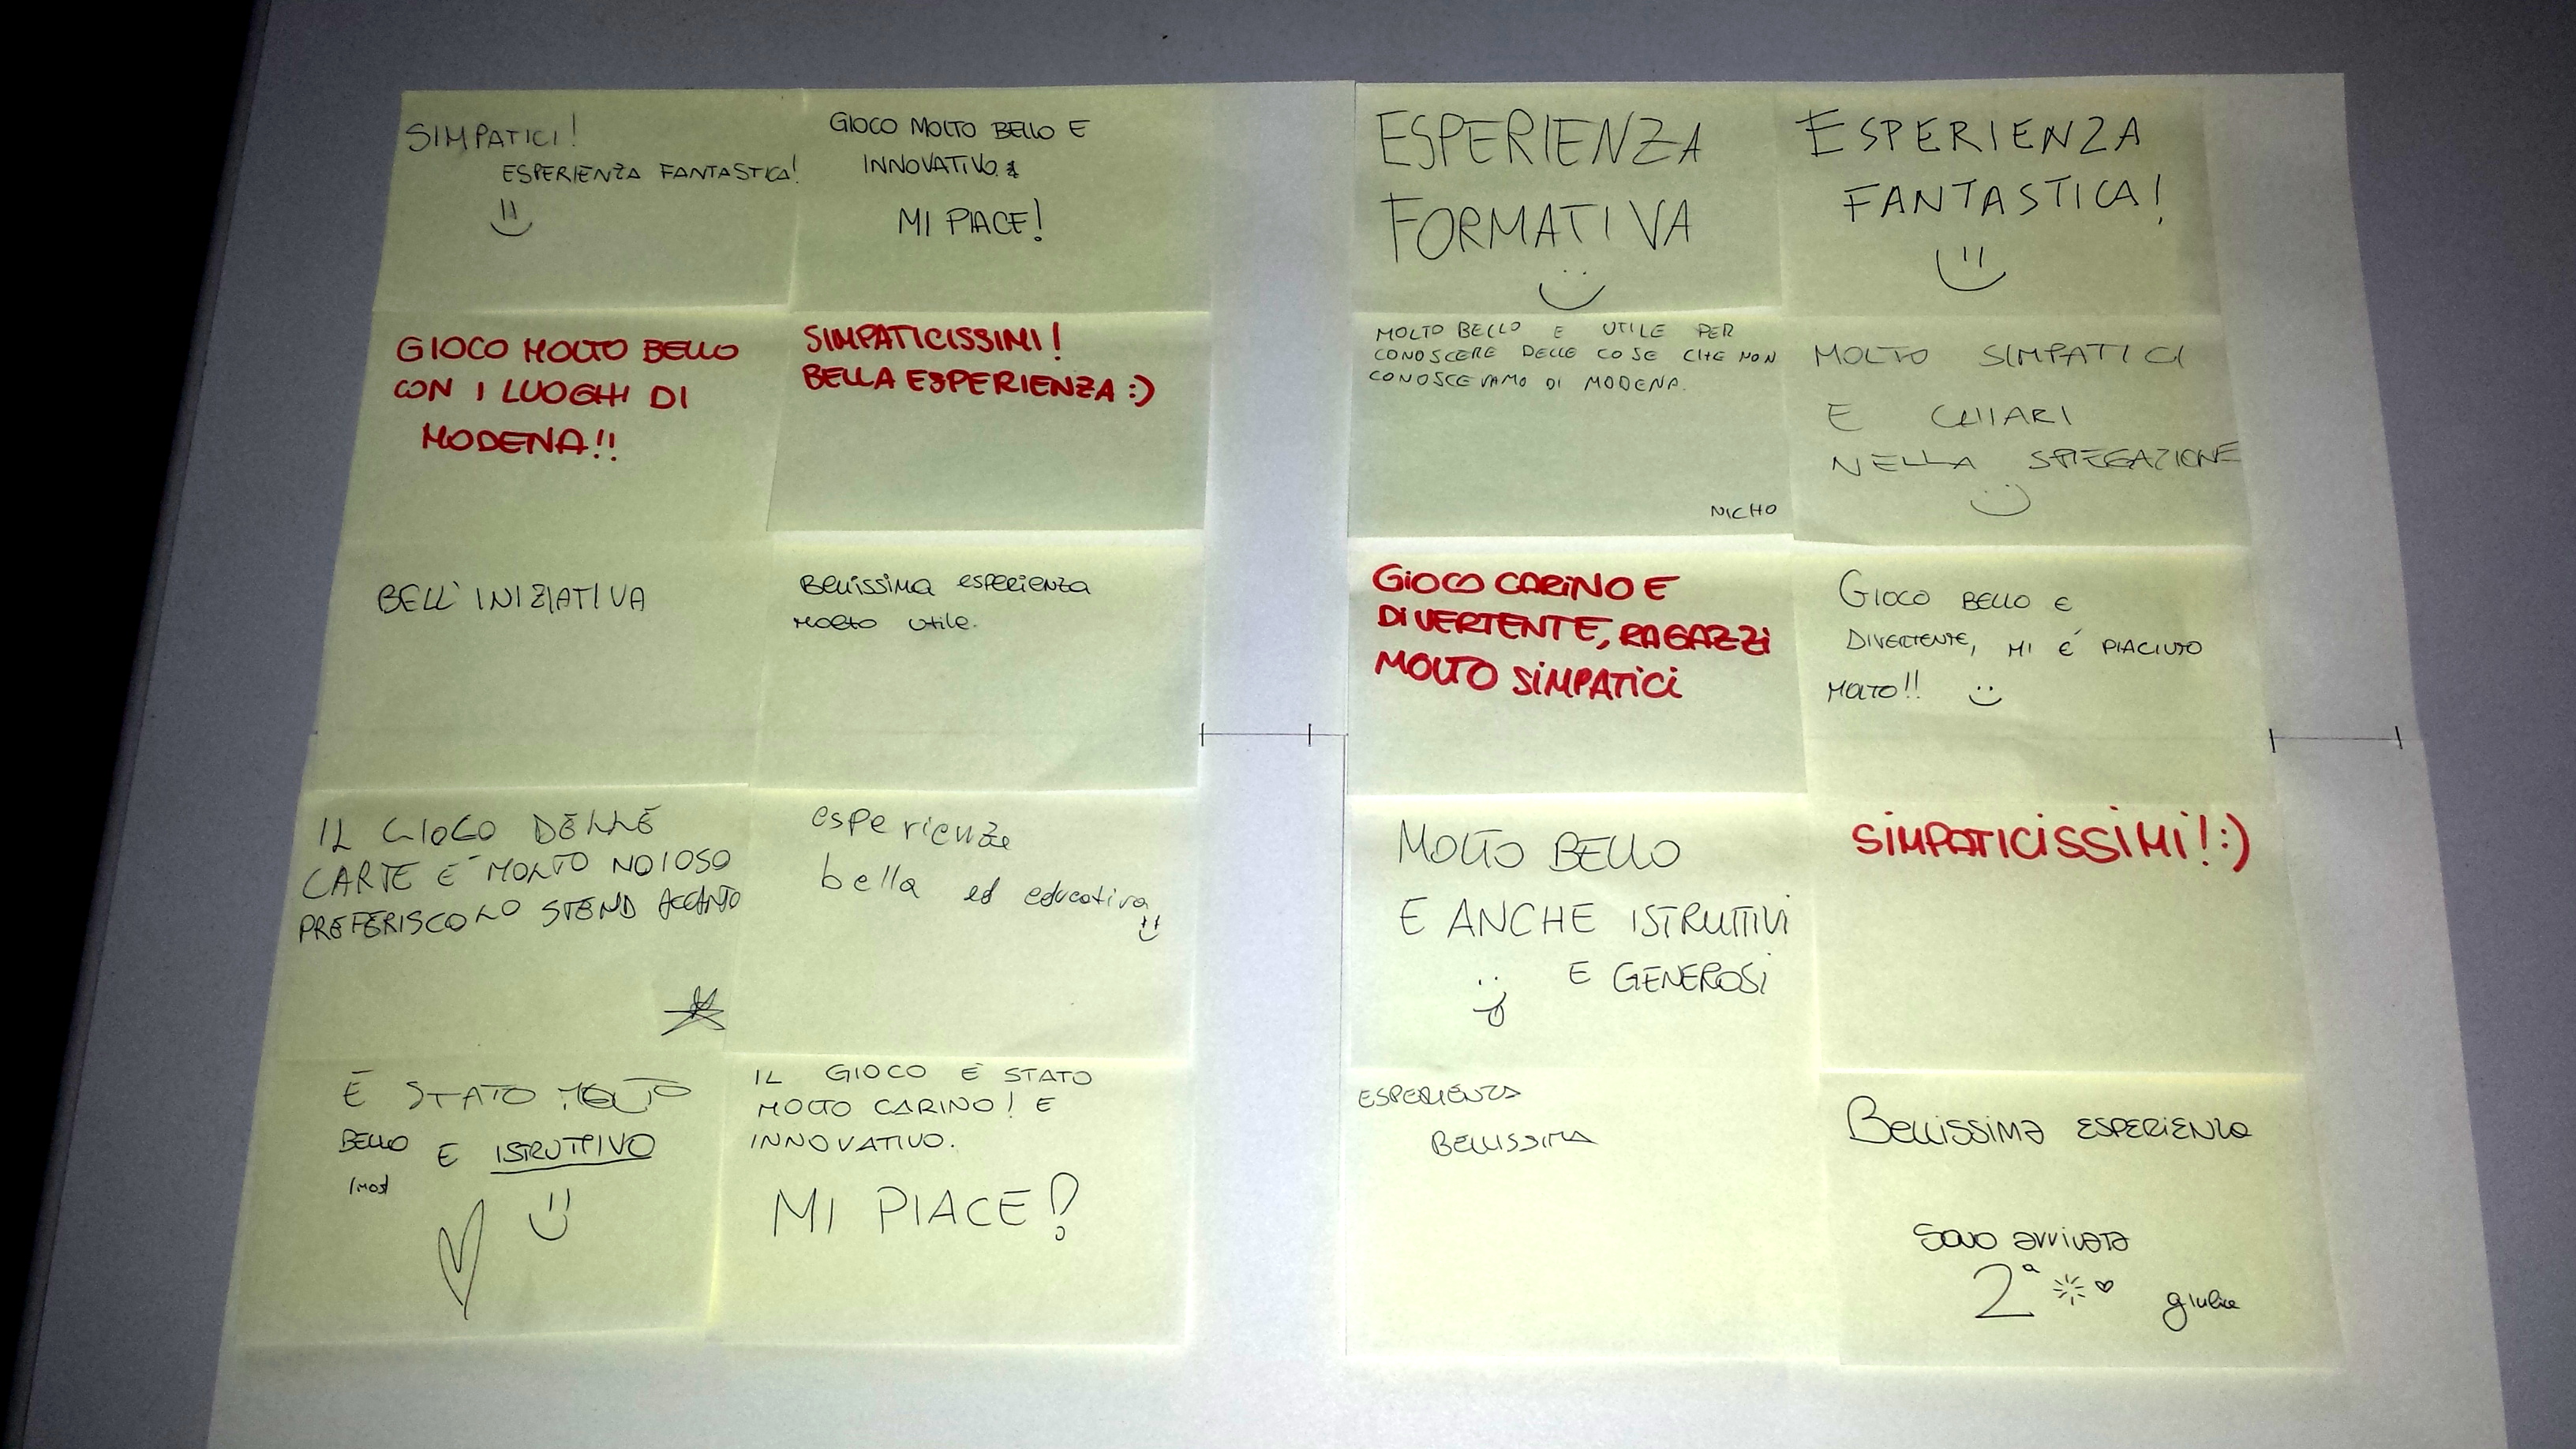 SIMPATICI!
ESPERIENZA FANTASTICA!
GIOCO MOLTO BELLO E
INNOVATIVO.
MI PIACE!
GIOCO MOLTO BELLO
CON I LUOGHI DI
MODENA!!
SIMPATICISSIMI!
BELLA ESPERIENZA :)
BELL'INIZIATIVA
Bellissima esperienza
molto utile.
IL GIOCO DELLE
CARTE E' MOLTO NOIOSO
PREFERISCO LO STEND ACCANTO
esperienza
bella ed educativa
È STATO MOLTO
BELLO E ISTRUTTIVO
IL GIOCO È STATO
MOLTO CARINO! E
INNOVATIVO.
MI PIACE!
ESPERIENZA
FORMATIVA
ESPERIENZA
FANTASTICA!
MOLTO BELLO E UTILE PER
CONOSCERE DELLE COSE CHE NON
CONOSCEVAMO DI MODENA.
NICHO
MOLTO SIMPATICI
E CHIARI
NELLA SPIEGAZIONE
GIOCO CARINO E
DIVERTENTE, RAGAZZI
MOLTO SIMPATICI
GIOCO BELLO E
DIVERTENTE, MI É PIACIUTO
MOLTO!!
MOLTO BELLO
E ANCHE ISTRUTTIVI
E GENEROSI
SIMPATICISSIMI! :)
ESPERIENZA
BELLISSIMA
Bellissima esperienza
Sono arrivata
2ª
giulia